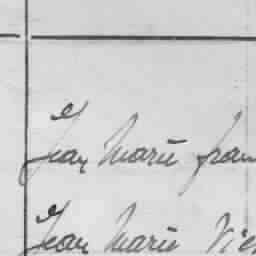 Jean Marie fran
Jean Marie Vic